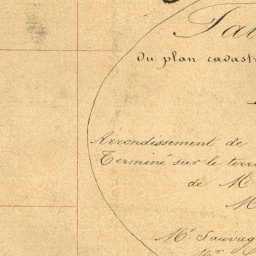 Ta
du plan cadast
Arrondissement de
Terminé sur le terr
de M
M
Mr Sauvag